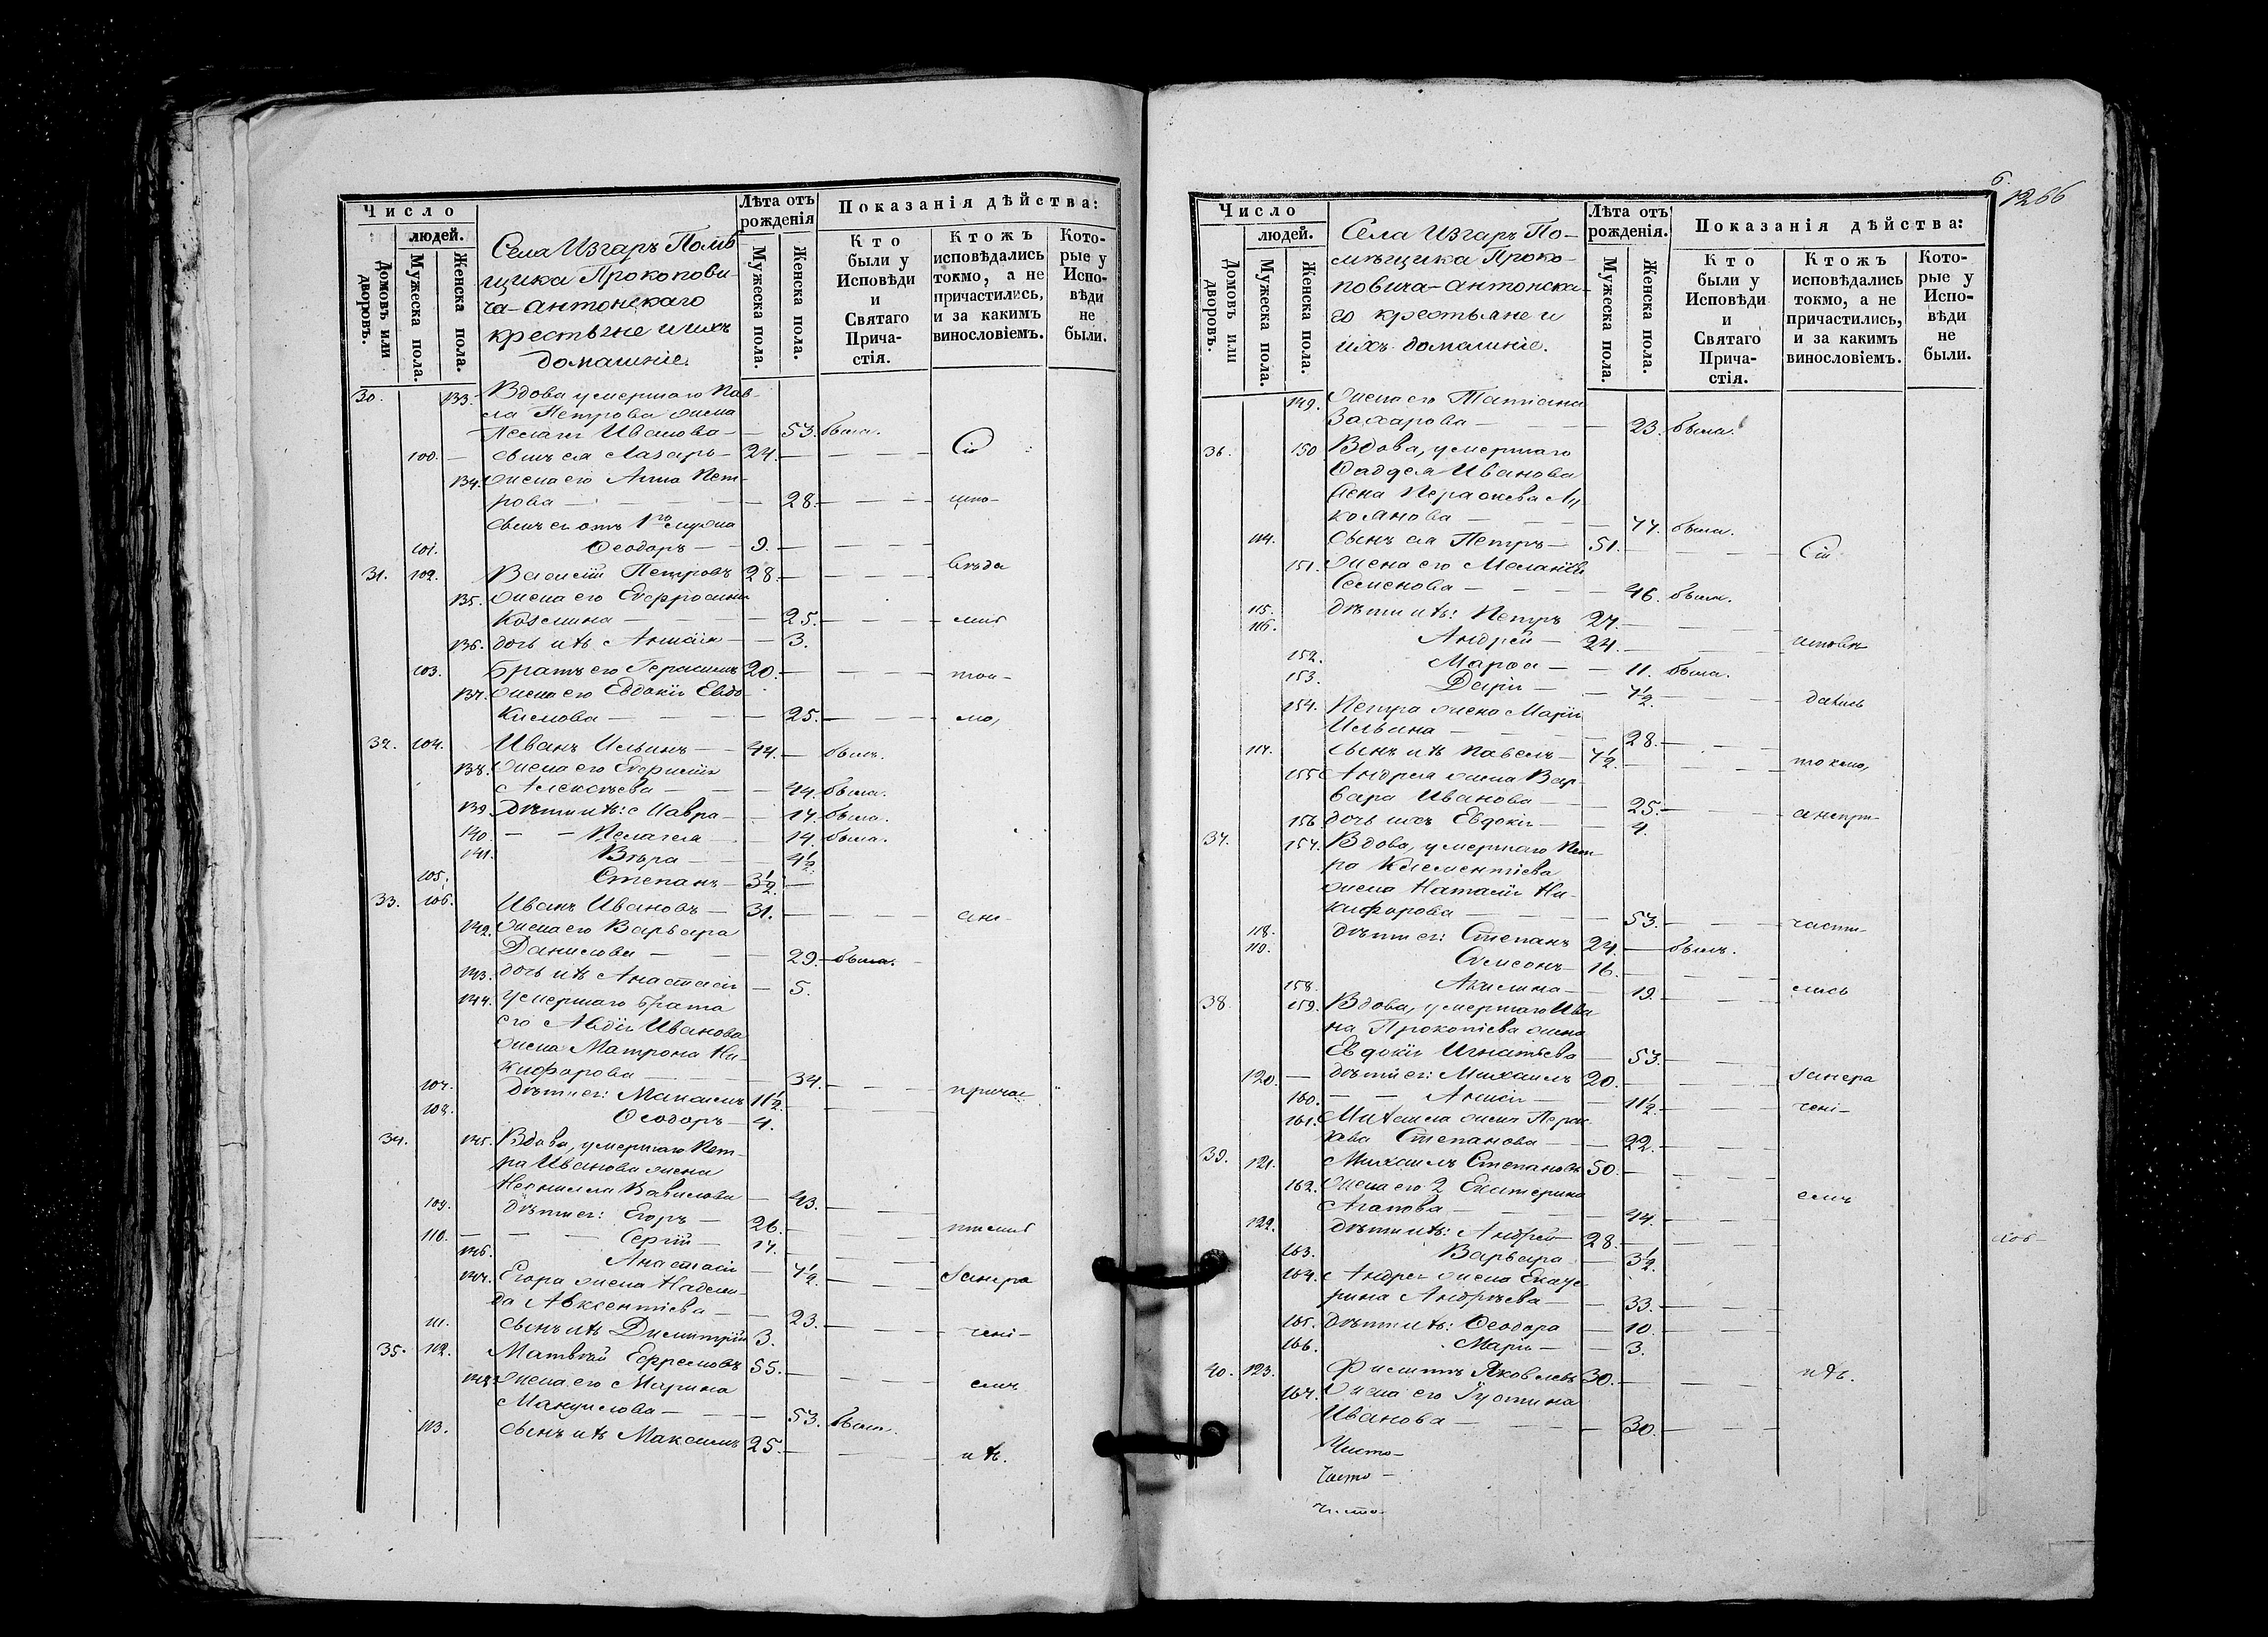 Число
людей.
Домовъ или дворовъ.
Мужеска пола.
Женска пола.
Села Изгаръ Помѣ-
щика Прокопови-
ча-Антонскаго
крестьяне и ихъ
домашніе.
Лѣта отъ рожденія
Мужеска пола.
Женска пола.
Показанія дѣйства:
Кто были у Исповѣди и Святаго Прича-стія.
Ктожъ исповѣдались токмо, а не причастились, и за какимъ винословіемъ.
Кото-рые у Испо-вѣди не были.
30. 133. Вдова умершаго Пав-
ла Петрова жена
Пелагія Иванова — 53. была.
100. — сынъ ея Лазарь — 24. — Сіи
134. жена его Анна Пет-
рова — 28. —
сынъ ея отъ 1го мужа
101. Ѳеодоръ — 9. —
31. 102. Василій Петровъ 28. —
135. жена его Евфросинія
Козмина — 25. —
136. дочь ихъ — 3.
103. Братъ его Герасимъ 20. — ток-
137. жена его Евдокія Евдо-
кимова — 25. — мо,
32. 104. Иванъ Ильинъ — 44. — былъ.
138. жена его
Алексѣева — 44. была.
139. Дѣти ихъ: Мавра — 17. была.
140. — — Пелагея — 14. была.
141. Вѣра — 4½
105. Степанъ — 3½. —
33. 106. Иванъ Ивановъ — 31. — ане-
142. жена его Варвара
Данилова — 29. — была.
143. дочь ихъ Анастасія — 5.
144. умершаго брата
его Авдія Иванова
жена Матрона Ни-
кифорова — 34. —
107. Дѣти ея: 11½. — причас
108. Ѳеодоръ — 4.
34. 145. Вдова, умершаго Пет-
ра Иванова жена
Неонилла Вавилова — 43. —
109. дѣти ея: Егоръ — 26. —
110. — — — Сергій — 17. —
146. Анастасія — 7½. —
147. Егора жена Надеж-
да Авксентіева — 23. —
111. сынъ ихъ Димитрій 3. чені-
35. 112. Матвѣй Ефремовъ 55. —
148. жена его Марина
Мануилова — 53. была. емъ
113. сынъ ихъ Максимъ 25. — ихъ.
6.
1266
Число
людей.
Домовъ или дворовъ.
Мужеска пола.
Женска пола.
Села Изгаръ По-
мѣщика Проко-
повича-Антонска-
го крестьяне и
ихъ домашніе.
Лѣта отъ рожденія.
Мужеска пола.
Женска пола.
Показанія дѣйства:
Кто были у Исповѣди и Святаго Прича-стія.
Ктожъ исповѣдались токмо, а не причастились, и за какимъ винословіемъ.
Кото-рые у Испо-вѣди не были.
149. жена его Татіана
Захарова — 23. была.
36. 150 Вдова, умершаго
Ѳаддея Иванова
жена
— 77. была.
114. Сынъ ея Петръ — 51. — Сіи
151. жена его Меланія
Семенова — 46. была.
115. дѣти ихъ: Петръ 27. —
116. Андрей — 24. — исповѣ
152. Марѳа — 11. была.
153. Дарія — 7½. — дались
154. Петра жена Марія
Ильина — 28. —
117. сынъ ихъ Павелъ — 7½. — токмо,
155 Андрея жена Вар-
вара Иванова — 25. —
156. дочь ихъ Евдокія — 4. анепри-
37. 157. Вдова, умершаго Пет-
ра Клементіева
жена Наталія Ни-
кифорова — 53. — части-
118. дѣти ея: Степанъ 24. — былъ.
119. Симеонъ — 16. —
158. Акилина — 19. — лись
38. 159. Вдова, умершаго Ива
на Прокопіева жена
Евдокія Игнатьева — 53. —
120. — дѣти ея: Михаилъ 20. —
160. — — Анисія — 11½. — чені-
161. Михаила жена Парас
кева Степанова — 22. —
39. 121. Михаилъ Степановъ 50. —
162. жена его 2 Екатерина
Агапова — 44. — емъ
122. дѣти ихъ: Андрей 28. —
163. Варвара — 3½.
164. Андрея жена Екате
рина Андрѣева — 33. —
165. дѣти ихъ: Ѳеодора — 10. —
166. Марія — 3.
40. 123. Филиппъ Яковлевъ 30. — ихъ.
167. жена его Іустина
Иванова — 30. —
Чисто-
Чисто-
Чисто-